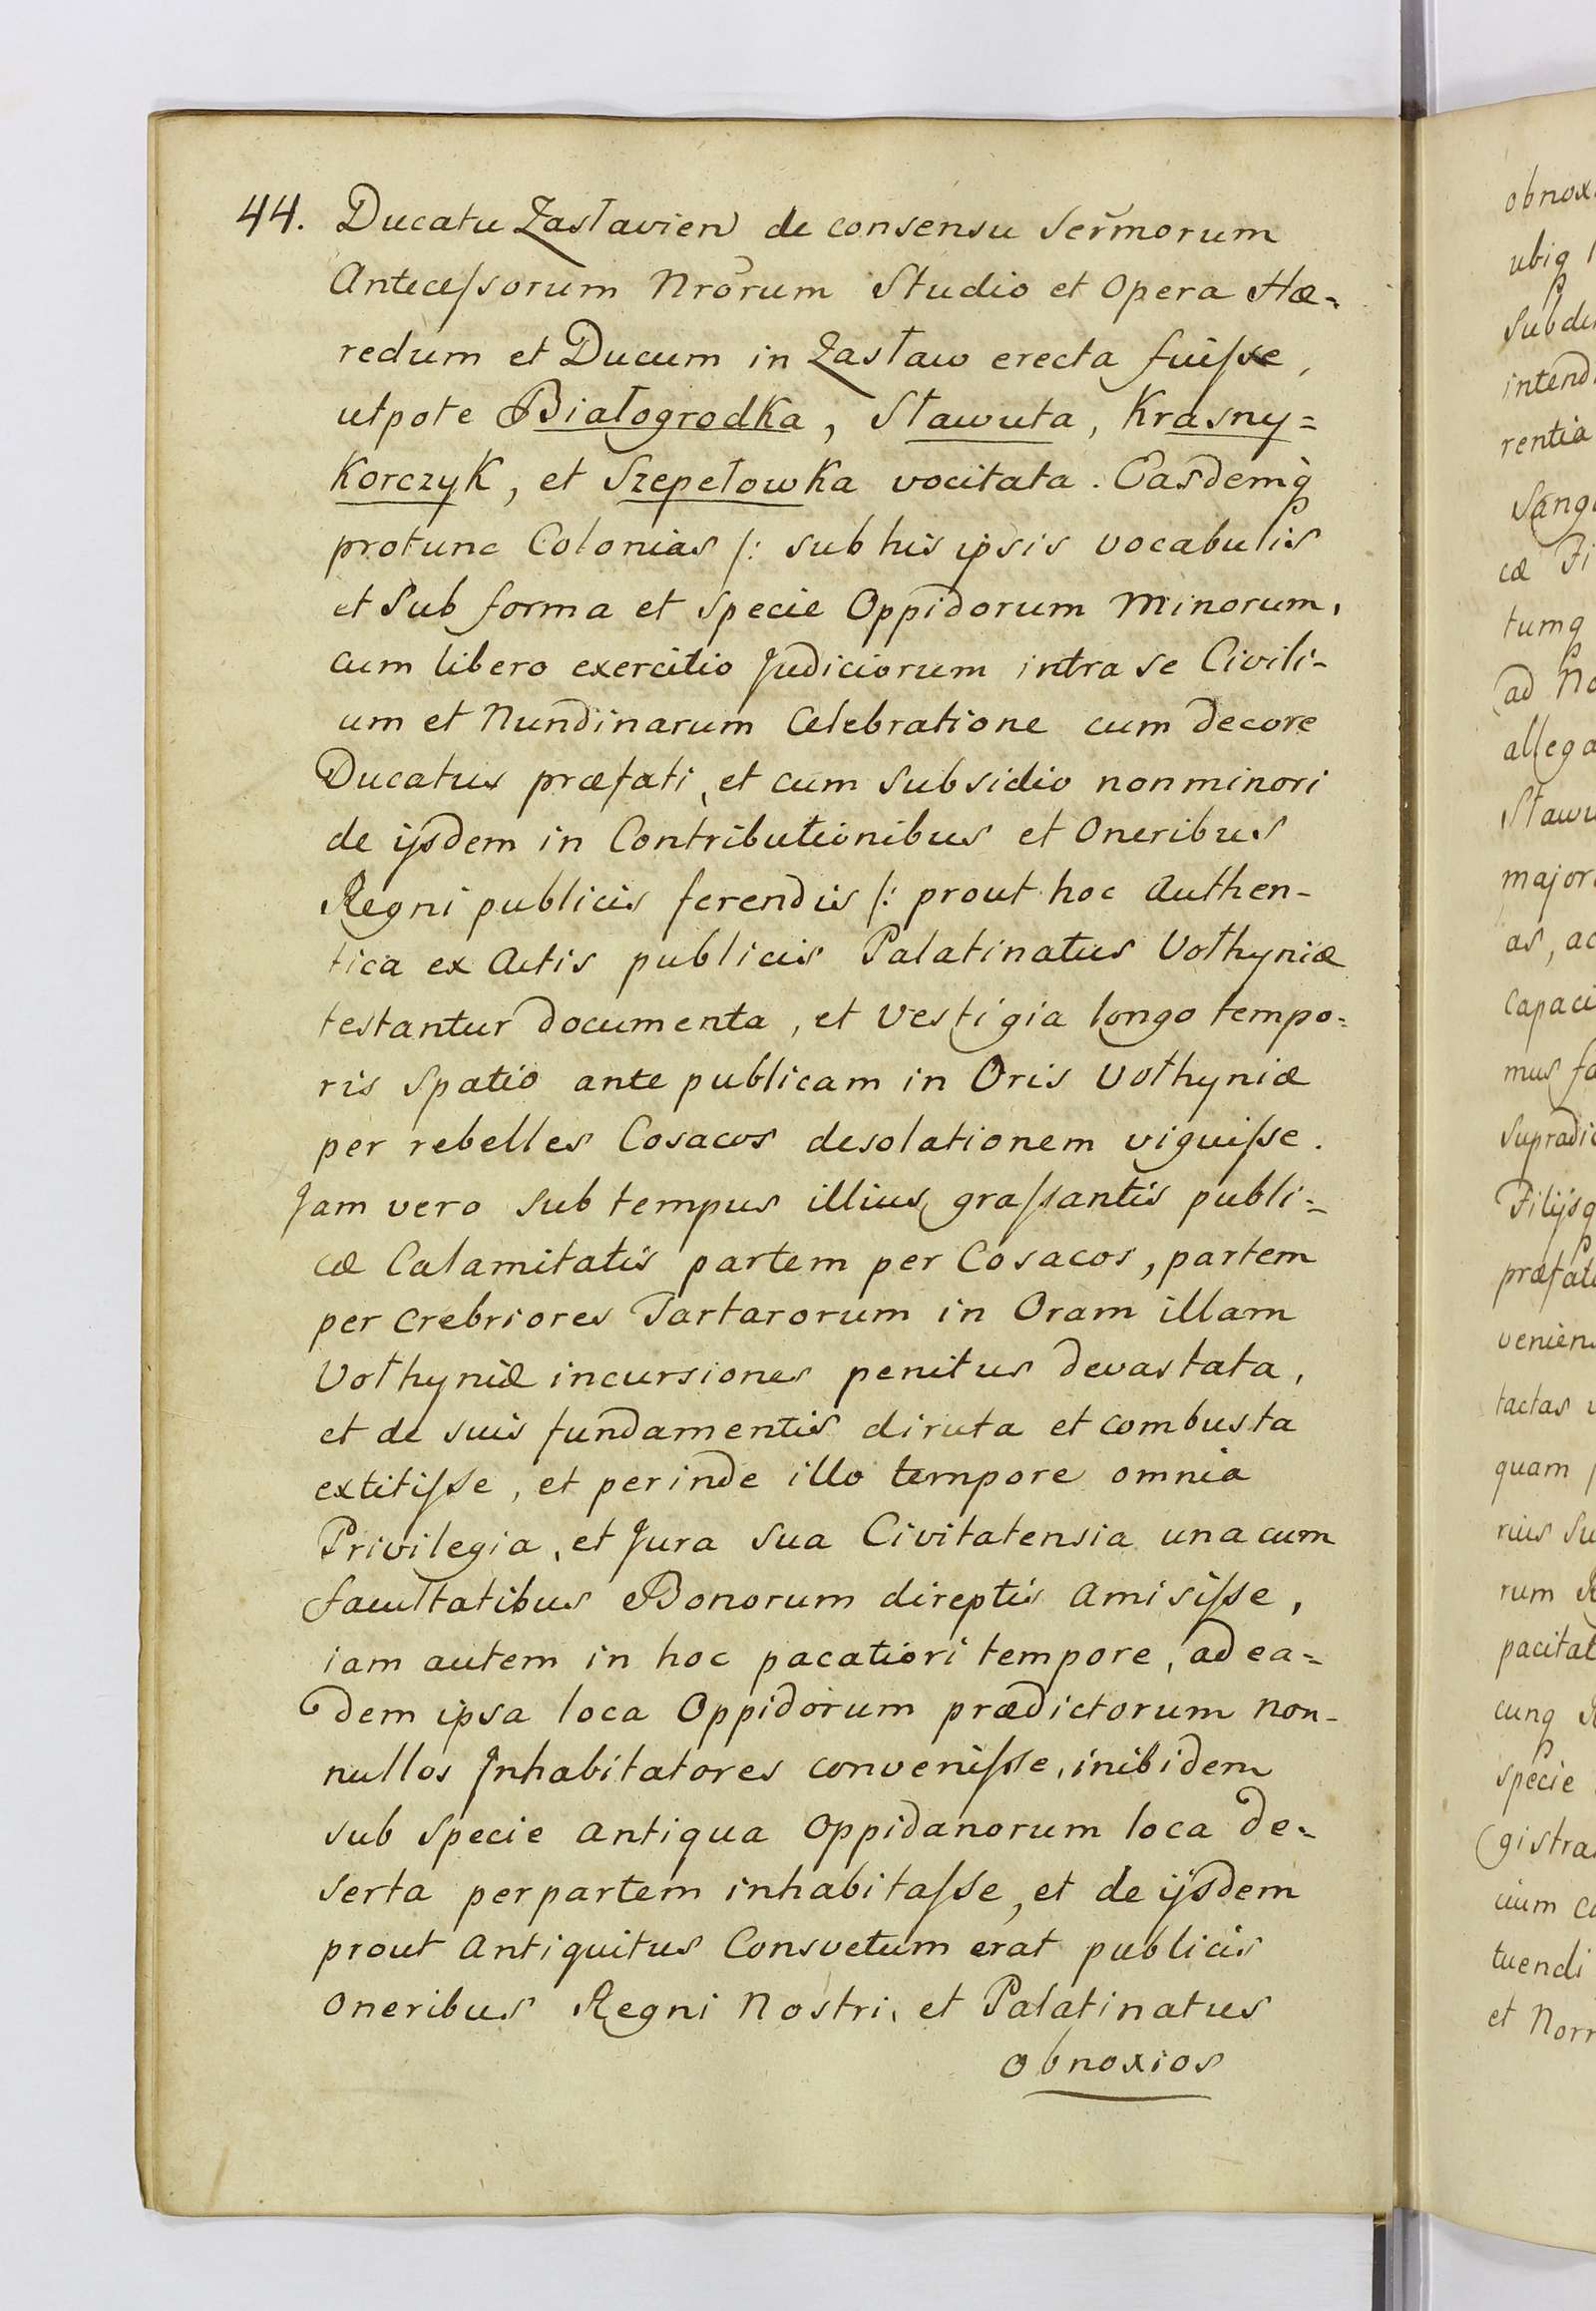 44. Ducatu Zasławien de consensu Serm̃orum
Antecessorum Nrõrum Studio et Opera Hæ=
redum et Ducum in Zasław erecta fuisse,
utpote Białogrodka, Sławuta, Krasny=
Korczyk, et Szepełowka vocitata. Easdemq̃
protunc Colonias /: sub his ipsis vocabulis
et Sub forma et specie Oppidorum Minorum,
cum libero exercitio Judiciorum intra se Civili-
um et Nundinarum Celebratione cum decore
Ducatus præfati, et cum subsidio non minori
de ijsdem in Contributionibus et Oneribus
Regni publicis ferendis /: prout hoc Authen-
tica ex Actis publicis Palatinatus Vołhyniæ
testantur documenta, et vestigia longo tempo=
ris spatio ante publicam in Oris Vołhyniæ
per rebelles Cosacos desolationem viguisse.
Jam vero sub tempus illius grassantis publi=
cæ Calamitatis partem per Cosacos, partem
per crebriores Tartarorum in Oram illam
Vołhyniæ incursiones penitus devastata,
et de suis fundamentis diruta et combusta
extitisse, et perinde illo tempore omnia
Privilegia, et Jura sua Civitatensia una cum
facultatibus Bonorum direptis amisisse,
iam autem in hoc pacatiori tempore, ad ea=
dem ipsa loca Oppidorum prædictorum non-
nullos Inhabitatores convenisse, inibidem
sub specie antiqua Oppidanorum loca de=
serta per partem inhabitasse, et de ijsdem
prout Antiquitus Consvetum erat publicis
Oneribus Regni Nostri, et Palatinatus
obnoxios
obnox
ubiq
subde
intend
rentia
Sang
cæ Fi
tumq
ad No
allega
Sławu
major
as, ac
Capaci
mus fa
supradic
Filijsq
præfat
venien
tactas
quam
rius su
rum
pacitat
cunq
specie
gistra
uium co
tuendi
et Nor